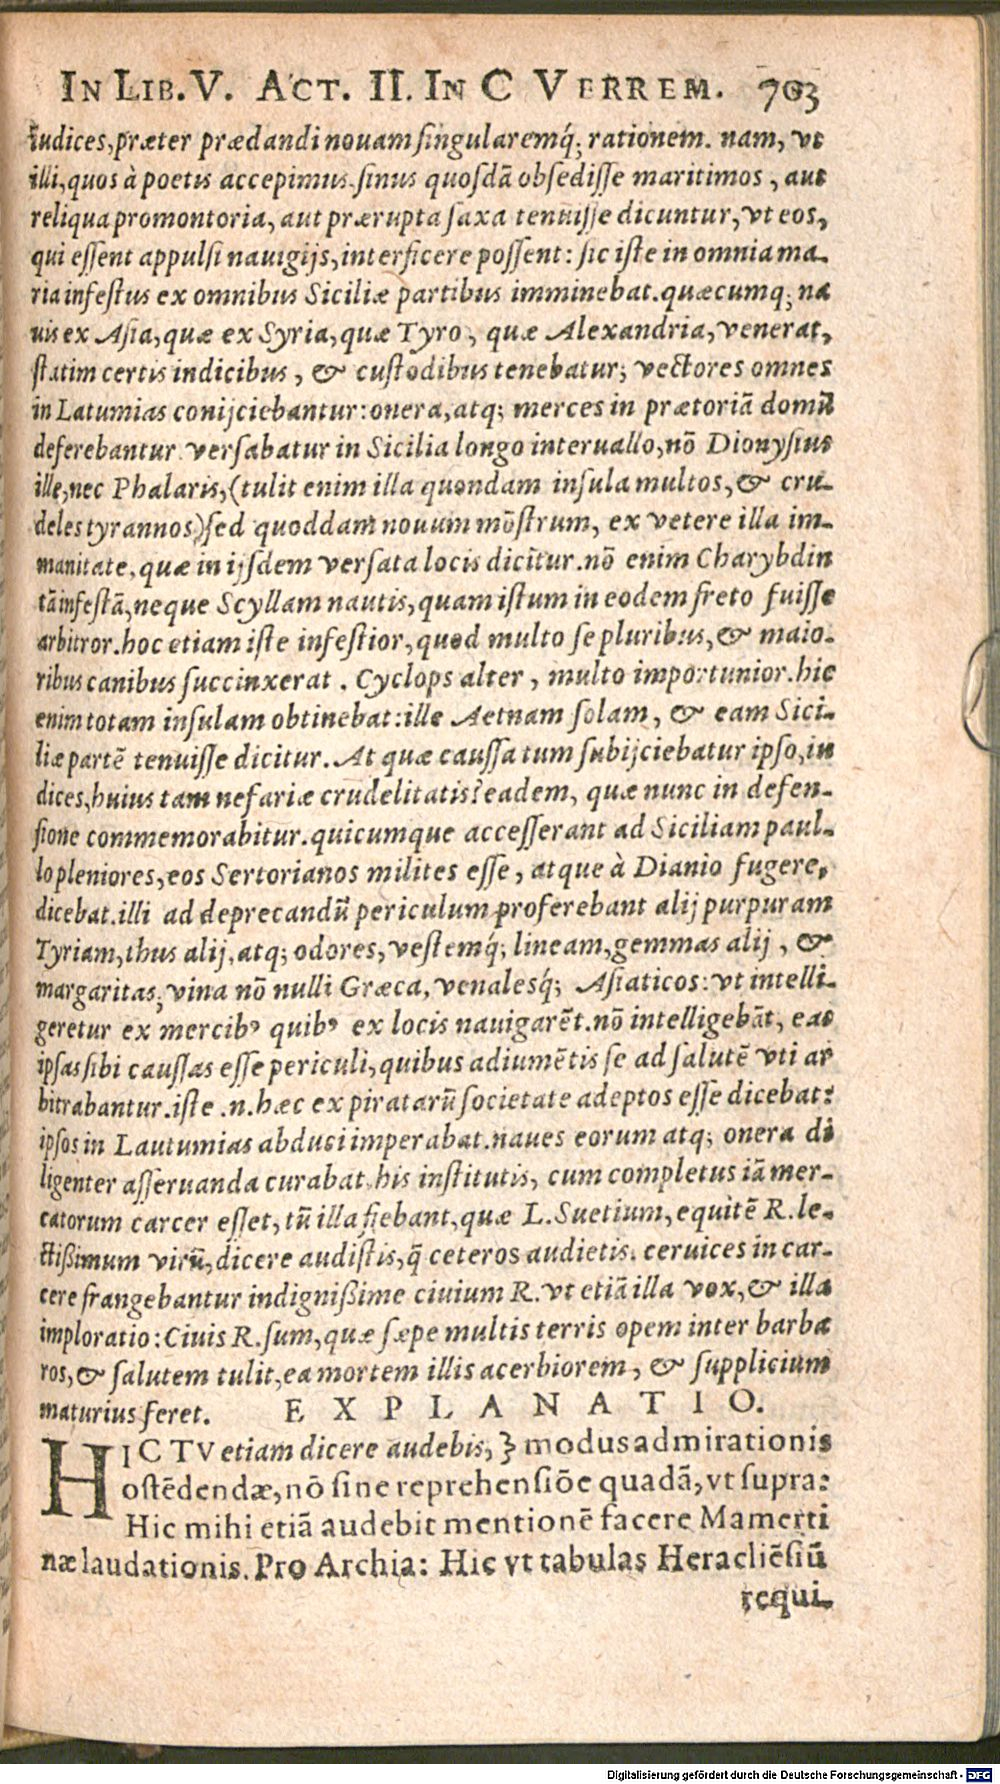 IN LIB. V. ACT. II. IN C VERREM. 703
iudices, præter prædandi nouam singularemq́; rationem. nam, vt
illi, quos à poetis accepimus sinus quosdã obsedisse maritimos, aut
reliqua promontoria, aut prærupta saxa tenuisse dicuntur, vt eos,
qui essent appulsi nauigijs, interficere possent: sic iste in omnia ma-
ria infestus ex omnibus Siciliæ partibus imminebat. quæcumq; na
uis ex Asia, quæ ex Syria, quæ Tyro, quæ Alexandria, venerat,
statim certis indicibus, & custodibus tenebatur; vectores omnes
in Latumias conijciebantur: onera, atq; merces in prætoriã domũ
deferebantur. versabatur in Sicilia longo interuallo, nõ Dionysius
ille, nec Phalaris, (tulit enim illa quondam insula multos, & cru-
deles tyrannos) sed quoddam nouum mõstrum, ex vetere illa im-
manitate, quæ in ijsdem versata locis dicitur. nõ enim Charybdin
tã infestã, neque Scyllam nautis, quam istum in eodem freto fuisse
arbitror. hoc etiam iste infestior, quod multo se pluribus, & maio-
ribus canibus succinxerat. Cyclops alter, multo importunior. hic
enim totam insulam obtinebat: ille Aetnam solam, & eam Sici-
liæ partẽ tenuisse dicitur. At quæ caussa tum subijciebatur ipso, iu
dices, huius tam nefariæ crudelitatis? eadem, quæ nunc in defen-
sione commemorabitur. quicumque accesserant ad Siciliam paul-
lo pleniores, eos Sertorianos milites esse, atque à Dianio fugere,
dicebat. illi ad deprecandũ periculum proferebant alij purpuram
Tyriam, thus alij, atq; odores, vestemq́; lineam, gemmas alij, &
margaritas, vina nõ nulli Græca, venalesq́; Asiaticos: vt intelli-
geretur ex mercibꝰ quibꝰ ex locis nauigarẽt. nõ intelligebãt, eas
ipsas sibi caussas esse periculi, quibus adiumẽtis se ad salutẽ vti ar
bitrabantur. iste .n. hæc ex piratarũ societate adeptos esse dicebat:
ipsos in Lautumias abduci imperabat. naues eorum atq; onera di
ligenter asseruanda curabat. his institutis, cum completus iã mer-
catorum carcer esset, tũ illa fiebant, quæ L. Suetium, equitẽ R. le-
ctißimum virũ, dicere audistis, q̃ ceteros audietis. ceruices in car-
cere frangebantur indignißime ciuium R. vt etiã illa vox, & illa
imploratio: Ciuis R. sum, quæ sæpe multis terris opem inter barba
ros, & salutem tulit, ea mortem illis acerbiorem, & supplicium
maturius feret. EXPLANATIO.
HIC TV etiam dicere audebis, ȝ modus admirationis
ostẽdendæ, nõ sine reprehensiõe quadã, vt supra:
Hic mihi etiã audebit mentionẽ facere Mamerti
næ laudationis. Pro Archia: Hic vt tabulas Heracliẽsiũ
requi-
Digitalisierung gefördert durch die Deutsche Forschungsgemeinschaft - DFG